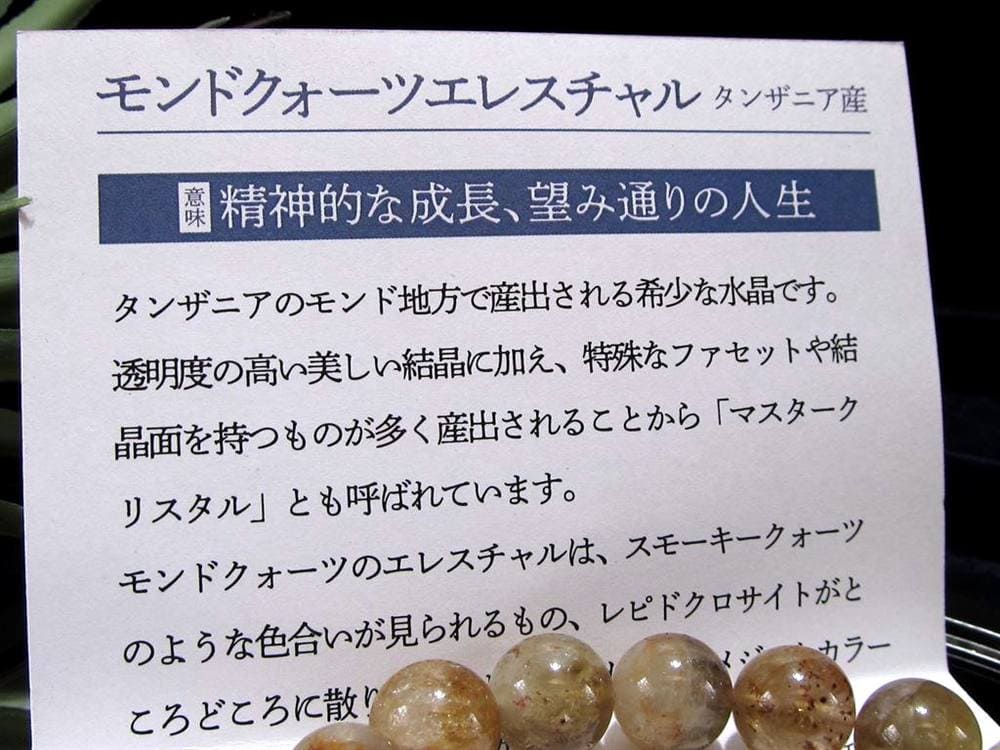 モンドクォーツエレスチャル タンザニア産
意味 精神的な成長、望み通りの人生
タンザニアのモンド地方で産出される希少な水晶です。
透明度の高い美しい結晶に加え、特殊なファセットや結
晶面を持つものが多く産出されることから「マスターク
リスタル」とも呼ばれています。
モンドクォーツのエレスチャルは、スモーキークォーツ
のような色合いが見られるもの、レピドクロサイトがと
ころどころに散り カラー